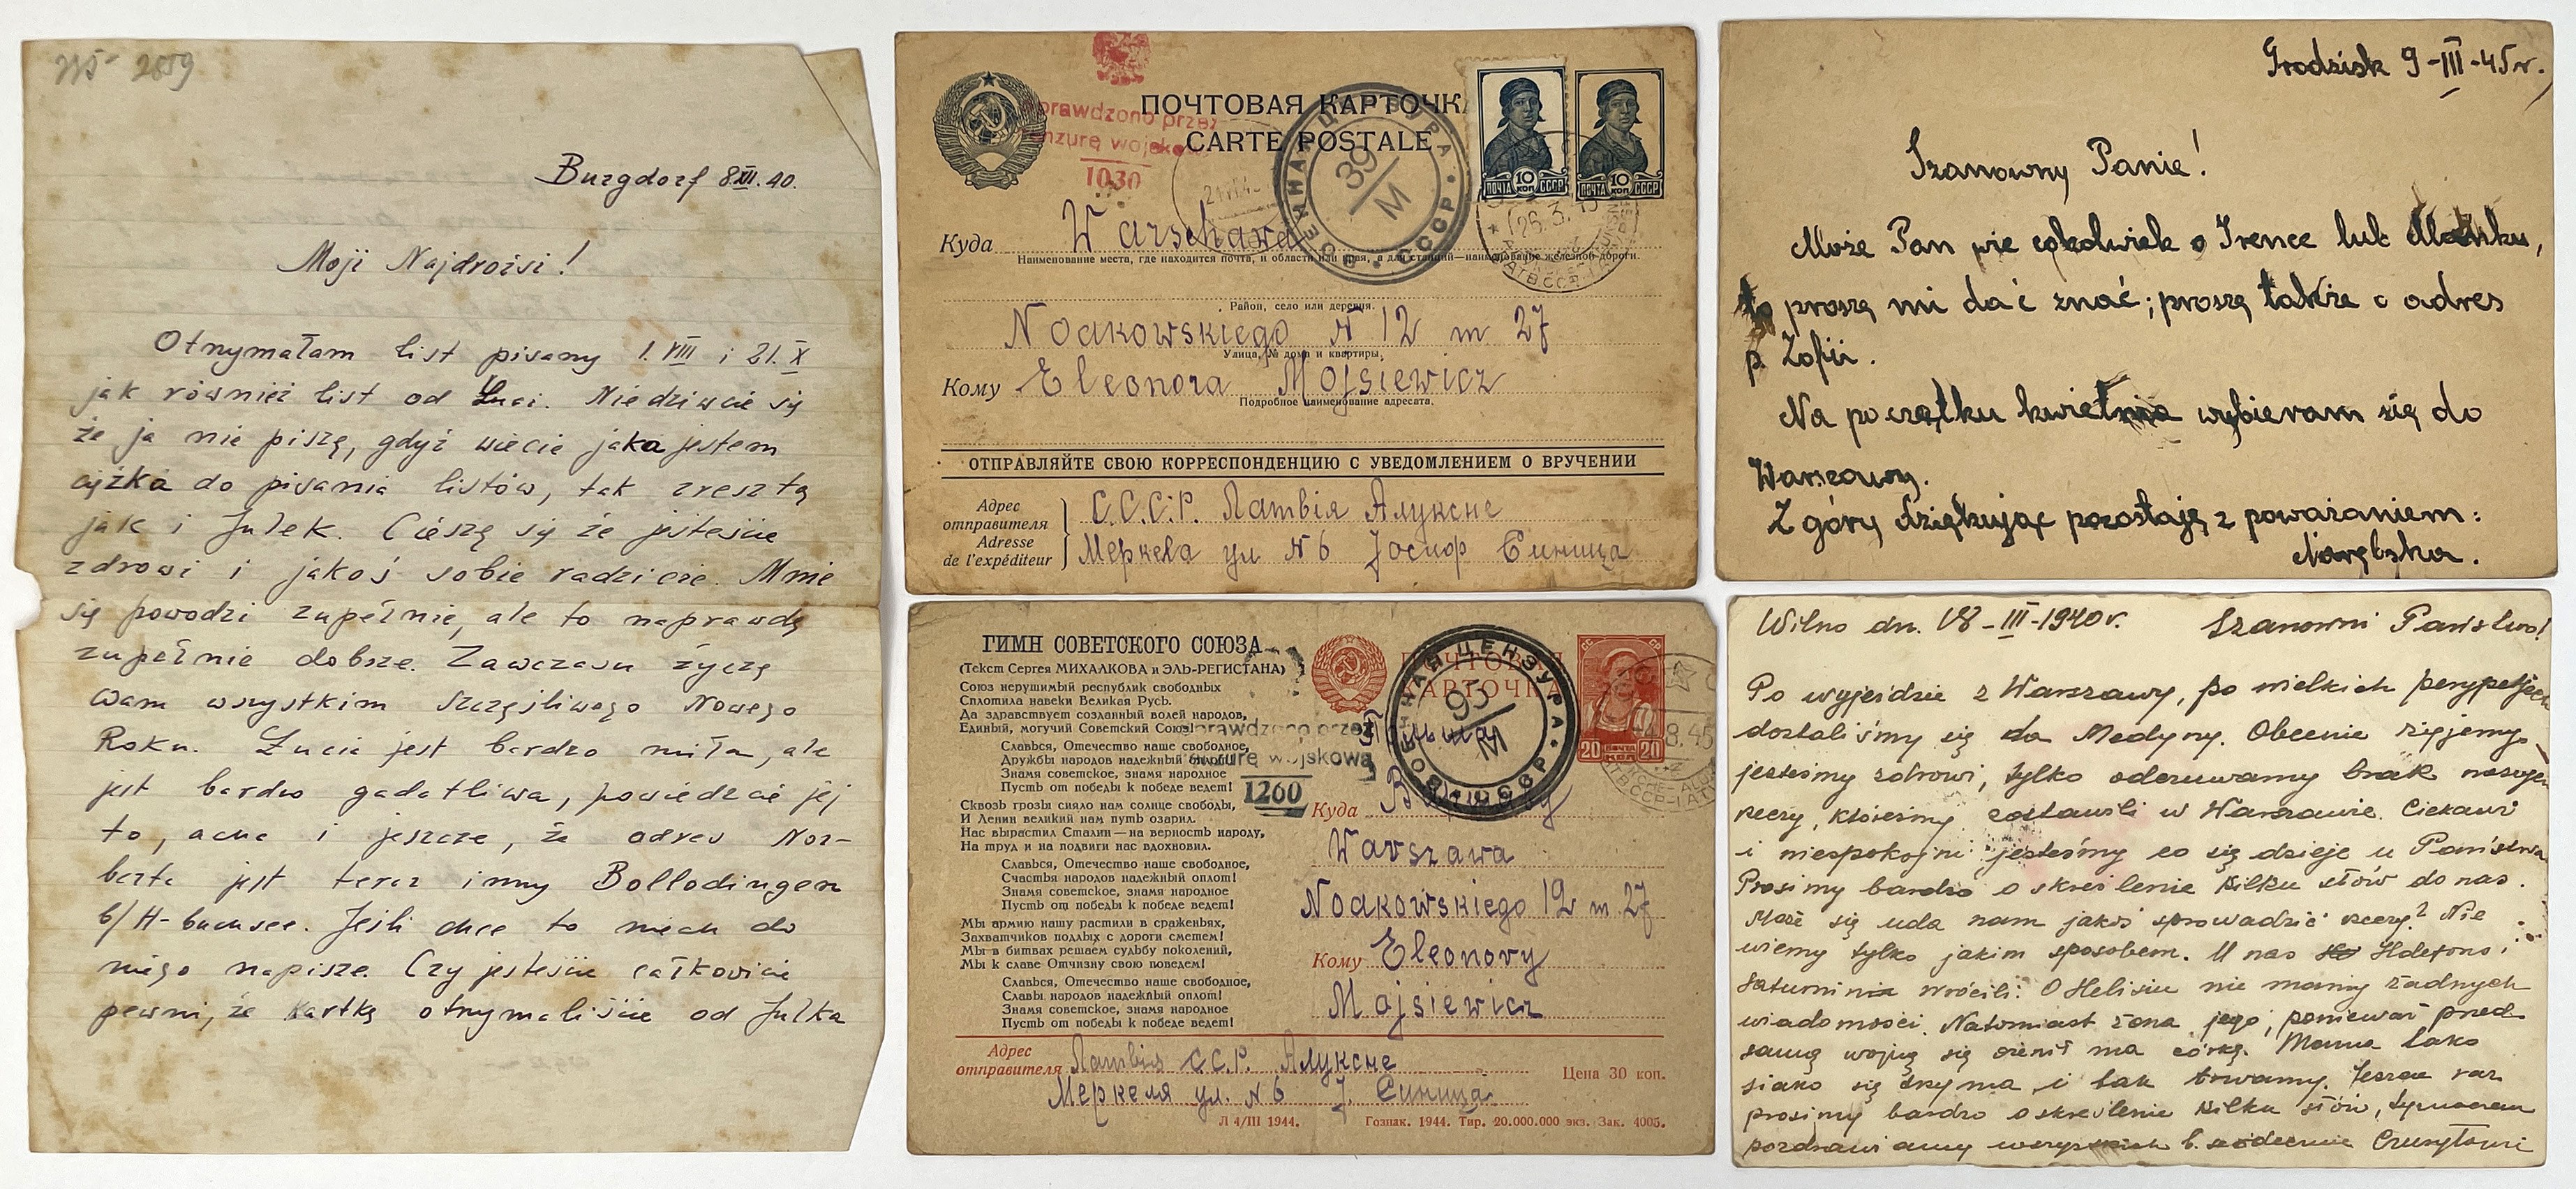 WŚ 2859
Burgdorf 8.XII.40.
Moji Najdrożsi!
Otrzymałam list pisany 1.VIII i 21.X
jak również list od Luci. Niedziwcie się
że ja nie piszę, gdyż wiecie jaka jestem
ciężka do pisania listów, tak zresztą
jak i Julek. Cieszę się że jesteście
zdrowi i jakoś sobie radzicie. Mnie
się powodzi zupełnie, ale to naprawdę
zupełnie dobrze. Zawczasu życzę
wam wszystkim szczęśliwego Nowego
Roku. Lucia jest bardzo miła, ale
jest bardzo gadatliwa, powiedzcie jej
to, acha i jeszcze, że adres Nor-
berta jest teraz inny Bollodingen
b/H-buchsee. Jeśli chce to niech do
niego napisze. Czy jesteście całkowicie
pewni, że kartkę otrzymaliście od Julka
ПОЧТОВАЯ КАРТОЧКА
CARTE POSTALE
prawdzono przez
nzurę wojskową
1030
ВОЕННАЯ ЦЕНЗУРА СССР
39/М
ПОЧТА 10 КОП СССР
ПОЧТА 10 КОП СССР
26.3.45
Куда Warschawa
Наименование места, где находится почта, и области или края, а для станций—наименование железной дороги.
Район, село или деревня.
Noakowskiego N 12 m 27
Улица, № дома и квартиры,
Кому Eleonora Mojsiewicz
Подробное наименование адресата.
ОТПРАВЛЯЙТЕ СВОЮ КОРРЕСПОНДЕНЦИЮ С УВЕДОМЛЕНИЕМ О ВРУЧЕНИИ
Адрес отправителя
Adresse de l'expéditeur
С.С.С.Р. Латвія Алуксне
Меркела ул N 6 Јосиф Синица
ГИМН СОВЕТСКОГО СОЮЗА
(Текст Сергея МИХАЛКОВА и ЭЛЬ-РЕГИСТАНА)
Союз нерушимый республик свободных
Сплотила навеки Великая Русь.
Да здравствует созданный волей народов,
Единый, могучий Советский Союз!
Славься, Отечество наше свободное,
Дружбы народов надежный оплот!
Знамя советское, знамя народное
Пусть от победы к победе ведет!
Сквозь грозы сияло нам солнце свободы,
И Ленин великий нам путь озарил.
Нас вырастил Сталин—на верность народу,
На труд и на подвиги нас вдохновил.
Славься, Отечество наше свободное,
Счастья народов надежный оплот!
Знамя советское, знамя народное
Пусть от победы к победе ведет!
Мы армию нашу растили в сраженьях,
Захватчиков подлых с дороги сметем!
Мы в битвах решаем судьбу поколений,
Мы к славе Отчизну свою поведем!
Славься, Отечество наше свободное,
Славы народов надежный оплот!
Знамя советское, знамя народное
Пусть от победы к победе ведет!
ПОЧТОВАЯ
КАРТОЧКА
prawdzono przez
nzurę wojskową
1260
ВОЕННАЯ ЦЕНЗУРА СССР
95/М
20 ПОЧТА 20
8.45
Польша
Куда
Warszawa
Noakowskiego 12 m 27
Кому Eleonory
Mojsiewicz
Адрес отправителя
Латвія С.С.Р. Алуксне
Меркеля ул. N 6 J. Синица
Цена 30 коп.
Л 4/III 1944.
Гознак. 1944. Тир. 20.000.000 экз. Зак. 4005.
Grodzisk 9-III-45r.
Szanowny Panie!
Może Pan wie cokolwiek o Irence lub Marku,
to proszę mi dać znać; proszę także o adres
p. Zofii.
Na początku kwietnia wybieram się do
Warszawy.
Z góry dziękując pozostaję z poważaniem:
Narębska.
Wilno dn. 18-III-1940r. Szanowni Państwo!
Po wyjeździe z Warszawy, po wielkich perypetjach
dostaliśmy się do Medyny. Obecnie żyjemy
jesteśmy zdrowi, tylko odczuwamy brak naszych
rzeczy, któreśmy zostawili w Warszawie. Ciekawi
i niespokojni jesteśmy co się dzieje u Państwa
Prosimy bardzo o skreślenie kilku słów do nas.
Może się uda nam jakoś sprowadzić rzeczy? Nie
wiemy tylko jakim sposobem. U nas Ildefons i
Saturnin wrócili. O Helisiu nie mamy żadnych
wiadomości. Natomiast żona jego, ponieważ przed
samą wojną się ożenił ma córkę. Mama tako
siako się trzyma i tak trwamy. Jeszcze raz
prosimy bardzo o skreślenie kilku słów, tymczasem
pozdrawiamy wszystkich b. serdecznie